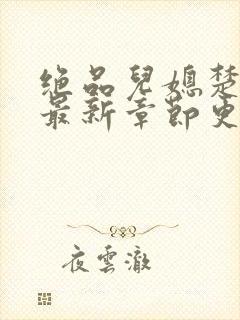 绝品兒媳楚
最新章節史
夜雲澈